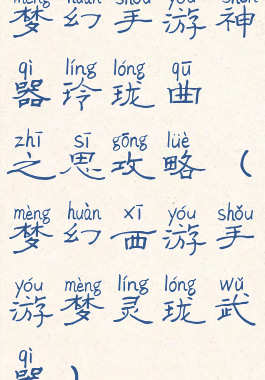 mèng huàn shǒu yóu shén
梦幻手游神
qì líng lóng qū
器玲珑曲
zhī sī gōng lüè
之思攻略（
mèng huàn xī yóu shǒu
梦幻西游手
yóu mèng líng lóng wǔ
游梦灵珑武
qì
器）